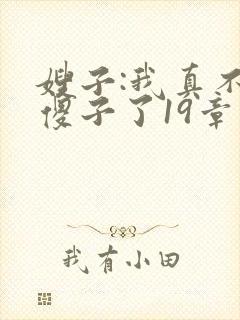 嫂子:我真不
傻子了19章
我有小田